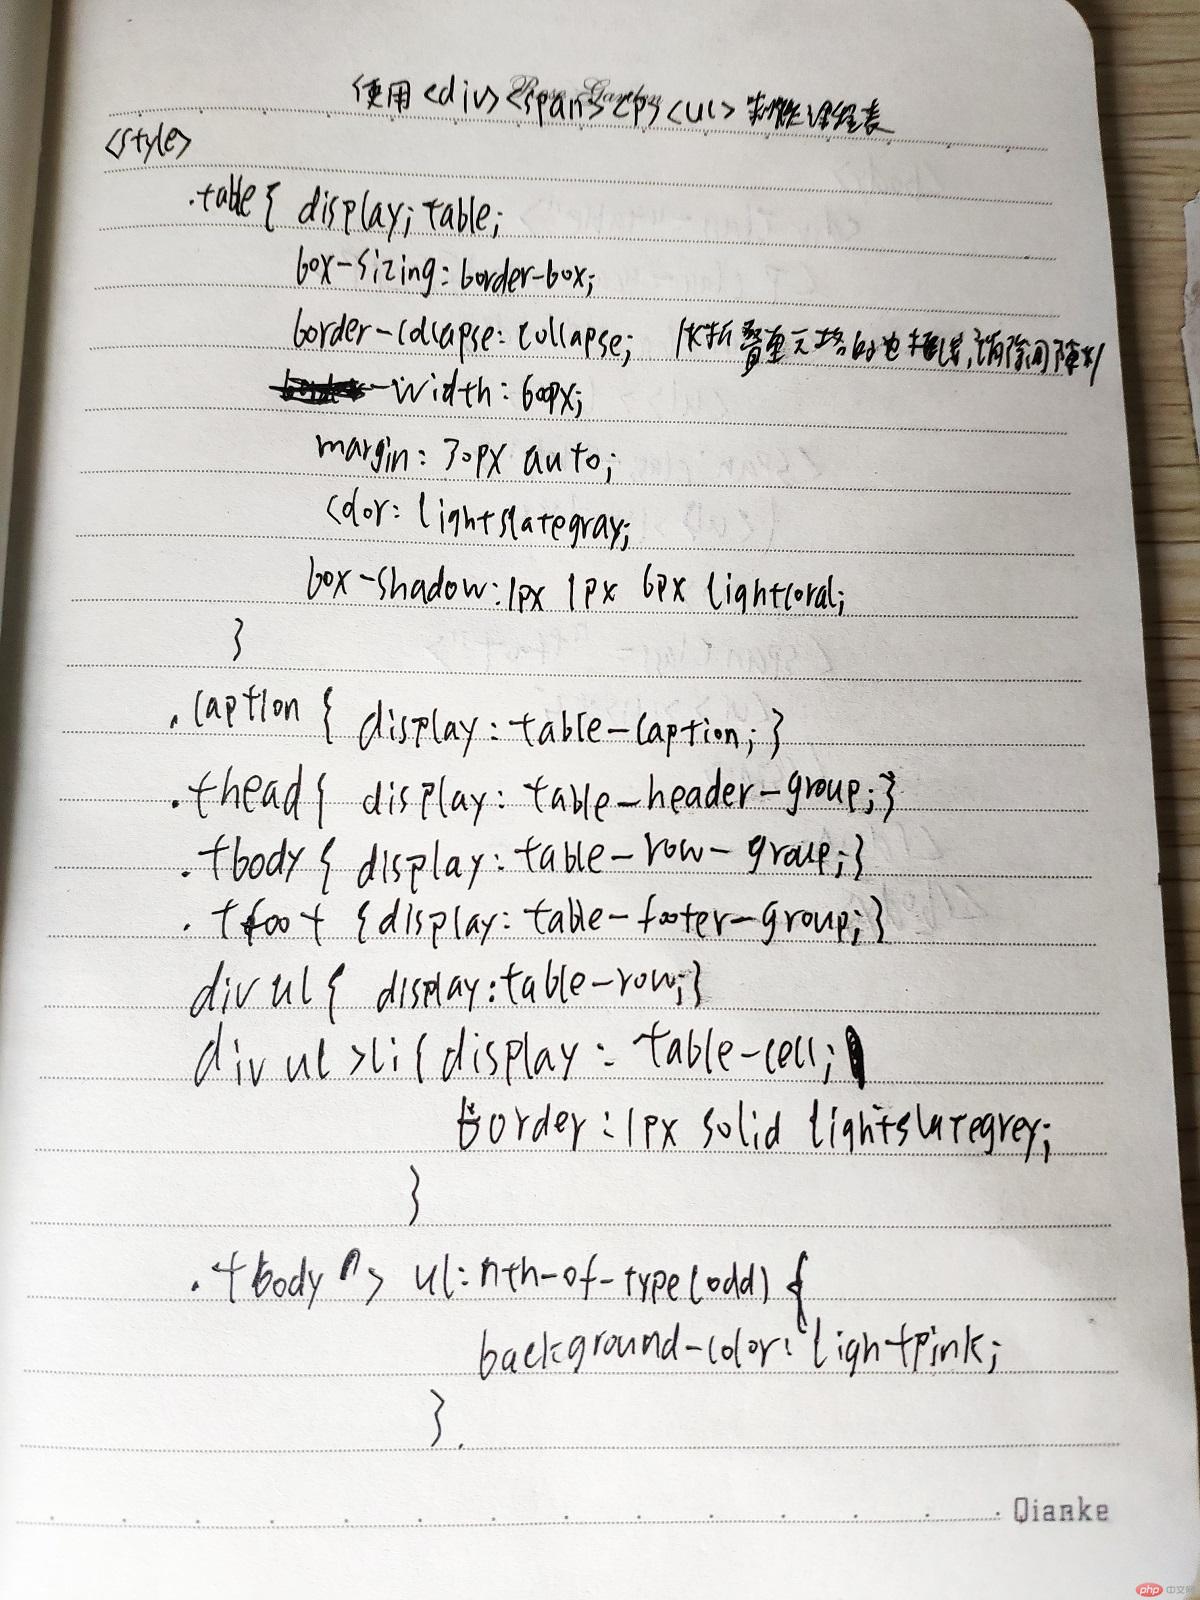 Rose Garden
使用<div><span><p><ul>制作课程表
<style>
.table{ display; table;
box-sizing: border-box;
border-collapse: collapse; /*折叠重元格的边框线,消除间隙*/
-width: 600px;
margin: 30px auto;
color: lightslategray;
box-shadow: 1px 1px 6px lightcoral;
}
.caption { display: table-caption; }
.thead{ display: table-header-group; }
.tbody { display: table-row-group; }
.tfoot { display: table-footer-group; }
div ul { display: table-row; }
div ul >li { display: table-cell;
border: 1px solid lightslategrey;
}
.tbody > ul:nth-of-type(odd) {
background-color: lightpink;
}.
Qianke
php 中文网